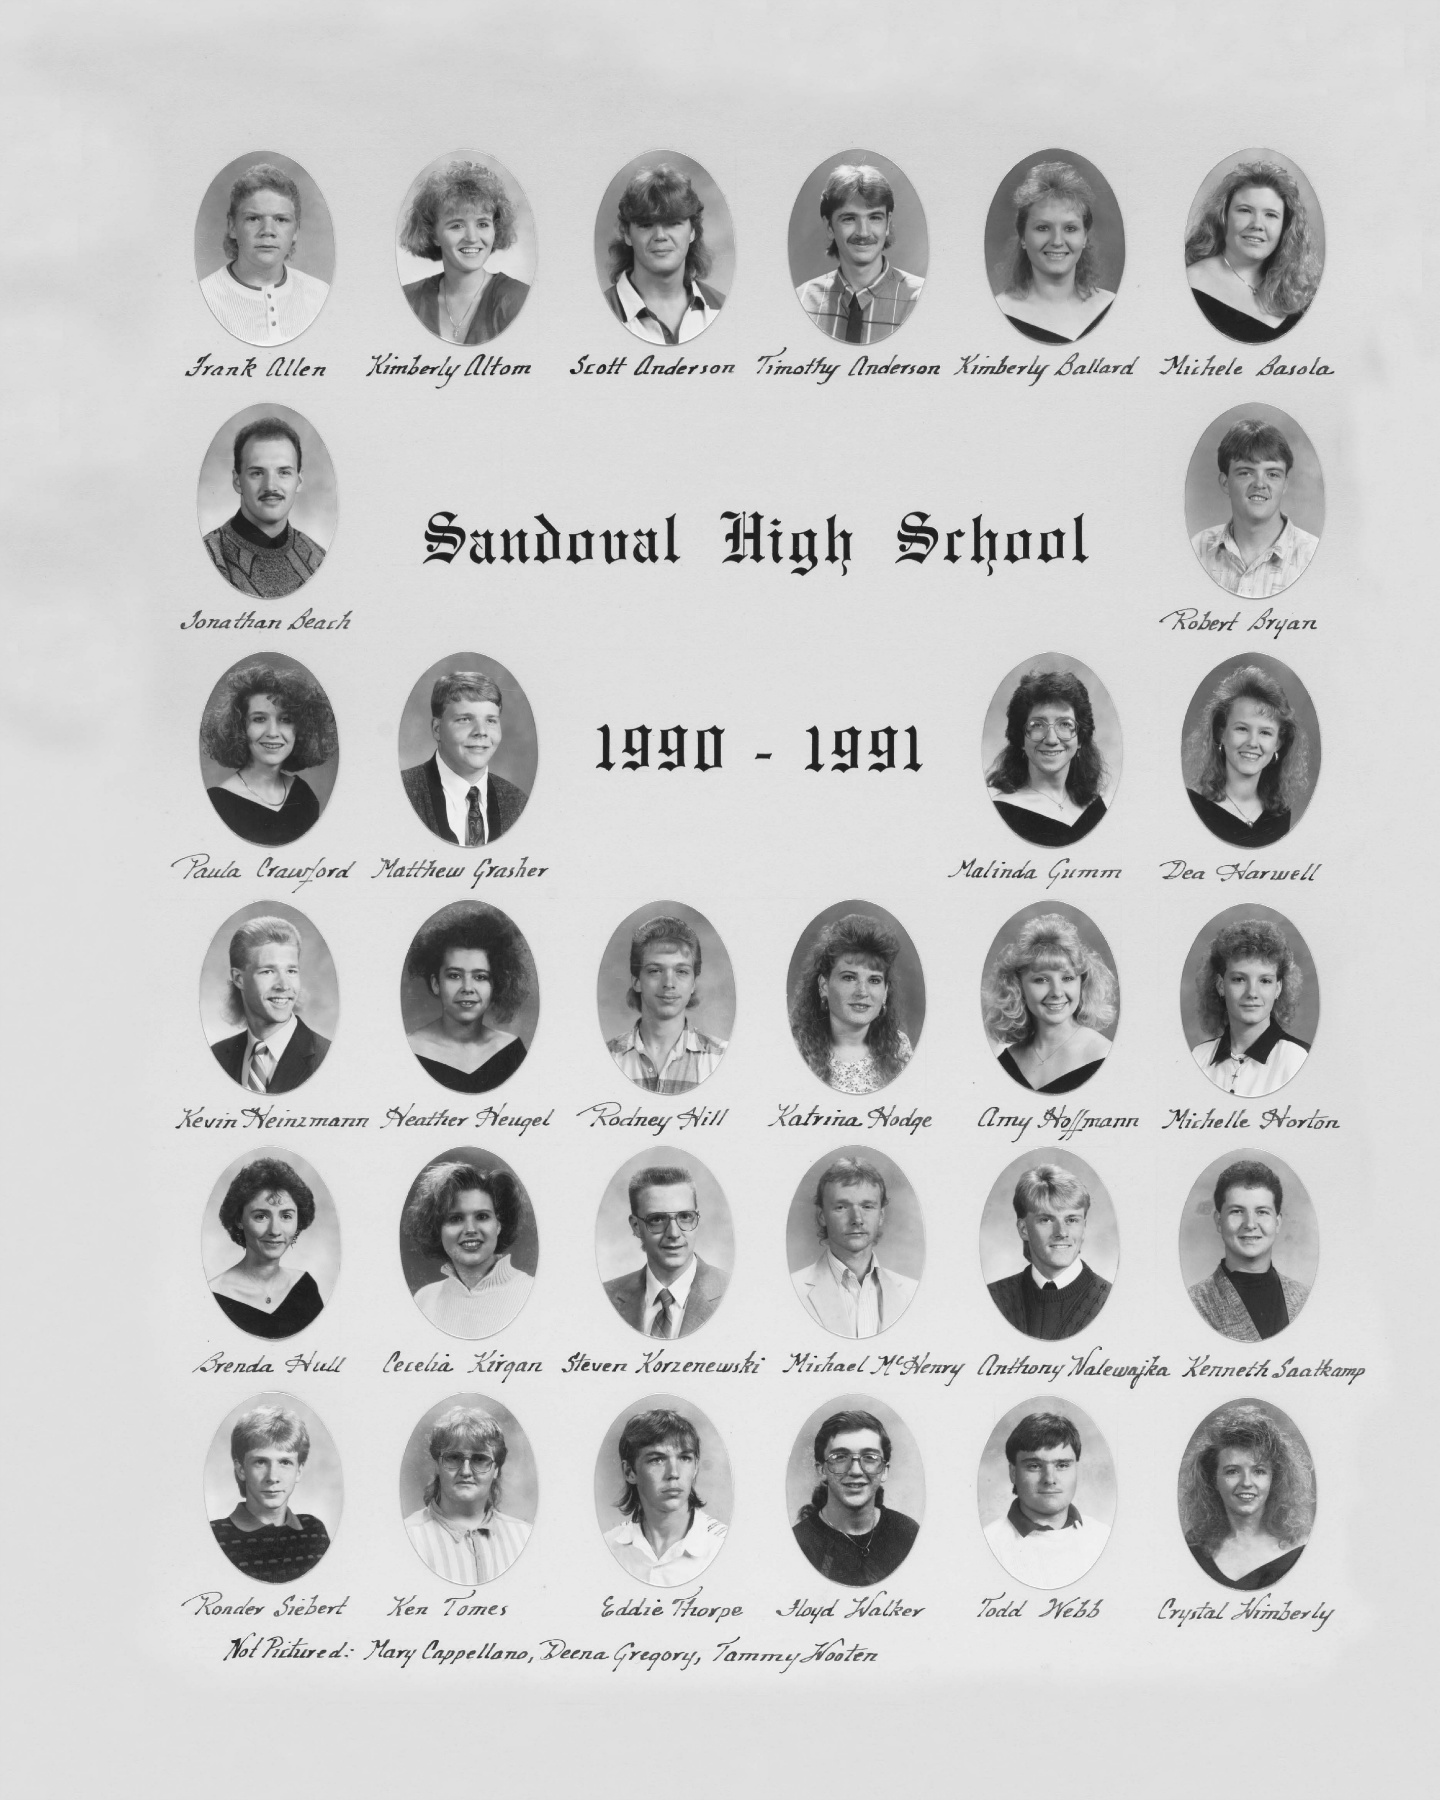 Frank Allen Kimberly Altom Scott Anderson Timothy Anderson Kimberly Ballard Michele Basola
Sandoval High School
Jonathan Beach Robert Bryan
1990 - 1991
Paula Crawford Matthew Grasher Malinda Gumm Dea Harwell
Kevin Heinzmann Heather Heugel Rodney Hill Katrina Hodge Amy Hoffmann Michelle Horton
Brenda Hull Cecelia Kirgan Steven Korzenewski Michael McHenry Anthony Nalewajka Kenneth Saatkamp
Ronder Siebert Ken Tomes Eddie Thorpe Floyd Walker Todd Webb Crystal Wimberly
Not Pictured: Mary Cappellano, Deena Gregory, Tammy Wooten